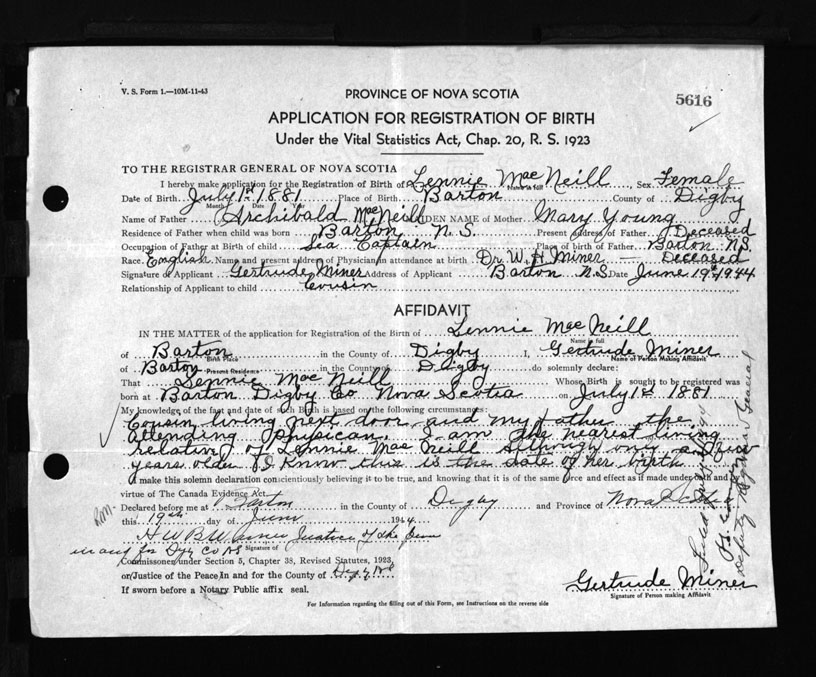 V. S. Form 1.—10M-11-43
PROVINCE OF NOVA SCOTIA
5616
APPLICATION FOR REGISTRATION OF BIRTH
Under the Vital Statistics Act, Chap. 20, R. S. 1923
TO THE REGISTRAR GENERAL OF NOVA SCOTIA
I hereby make application for the Registration of Birth of Lennie MacNeill, Sex Female
Name in full
Date of Birth July 1st 1881 Place of Birth Barton County of Digby
Month Date Year
Name of Father Archibald MacNeill MAIDEN NAME of Mother Mary Young
Residence of Father when child was born Barton N.S. Present address of Father Deceased
Occupation of Father at Birth of child Sea Captain Place of birth of Father Barton N.S.
Race English Name and present address of Physician in attendance at birth Dr. W. H. Miner — Deceased
Signature of Applicant Gertrude Miner Address of Applicant Barton N.S. Date June 19th 1944
Relationship of Applicant to child Cousin
AFFIDAVIT
IN THE MATTER of the application for Registration of the Birth of Lennie MacNeill
Name in full
of Barton in the County of Digby I, Gertrude Miner
Birth Place Name of Person Making Affidavit
of Barton in the County of Digby do solemnly declare:
Present Residence
That Lennie MacNeill Whose Birth is sought to be registered was
born at Barton Digby Co Nova Scotia on July 1st 1881
My knowledge of the fact and date of such Birth is based on the following circumstances:
Cousin living next door and my father the
attending physican. I am the nearest living
relative of Lennie MacNeill although only a few
years older I know this is the date of her birth
I make this solemn declaration conscientiously believing it to be true, and knowing that it is of the same force and effect as if made under oath and by
virtue of The Canada Evidence Act.
Declared before me at Barton in the County of Digby and Province of Nova Scotia
this 19th day of June 1944
H W B Warner Justice of the Peace
in and for Dig Co NS Signature of
Commissioner under Section 5, Chapter 38, Revised Statutes, 1923,
or Justice of the Peace In and for the County of Digby NS
If sworn before a Notary Public affix seal.
Gertrude Miner
Signature of Person making Affidavit
For Information regarding the filling out of this Form, see Instructions on the reverse side
Deputy Registrar General